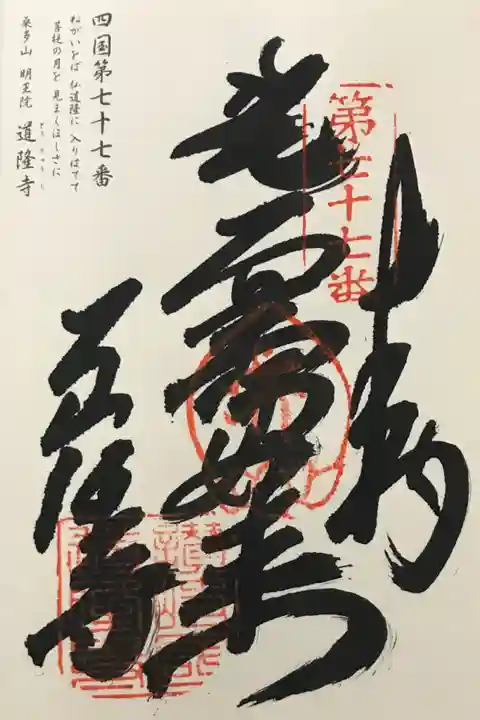 奉納
第七十七番
薬師如来
道隆寺
四国第七十七番
ねがいをば 仏道隆に 入りはてて
菩提の月を 見まくほしさに
桑多山 明王院 道隆寺
どうりゅうじ